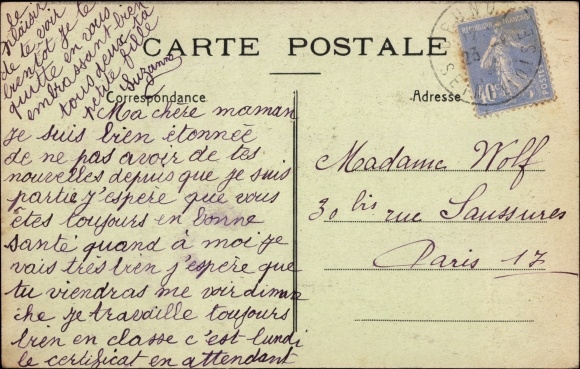 CARTE POSTALE
Correspondance
Adresse
Ma chère maman
je suis bien étonnée
de ne pas avoir de tes
nouvelles depuis que je suis
partie j'espère que vous
êtes toujours en bonne
santé quand à moi je
vais très bien j'espère que
tu viendras me voir diman
che je travaille toujours
bien en classe c'est lundi
le certificat en attendant
le
plaisir
de te voir
bientôt je te
quitte en vous
embrassant bien
tous deux ta
petite fille
Suzanne
Madame Wolf
30 bis rue Saussures
Paris 17
REPUBLIQUE FRANÇAISE
40c
POSTES
23